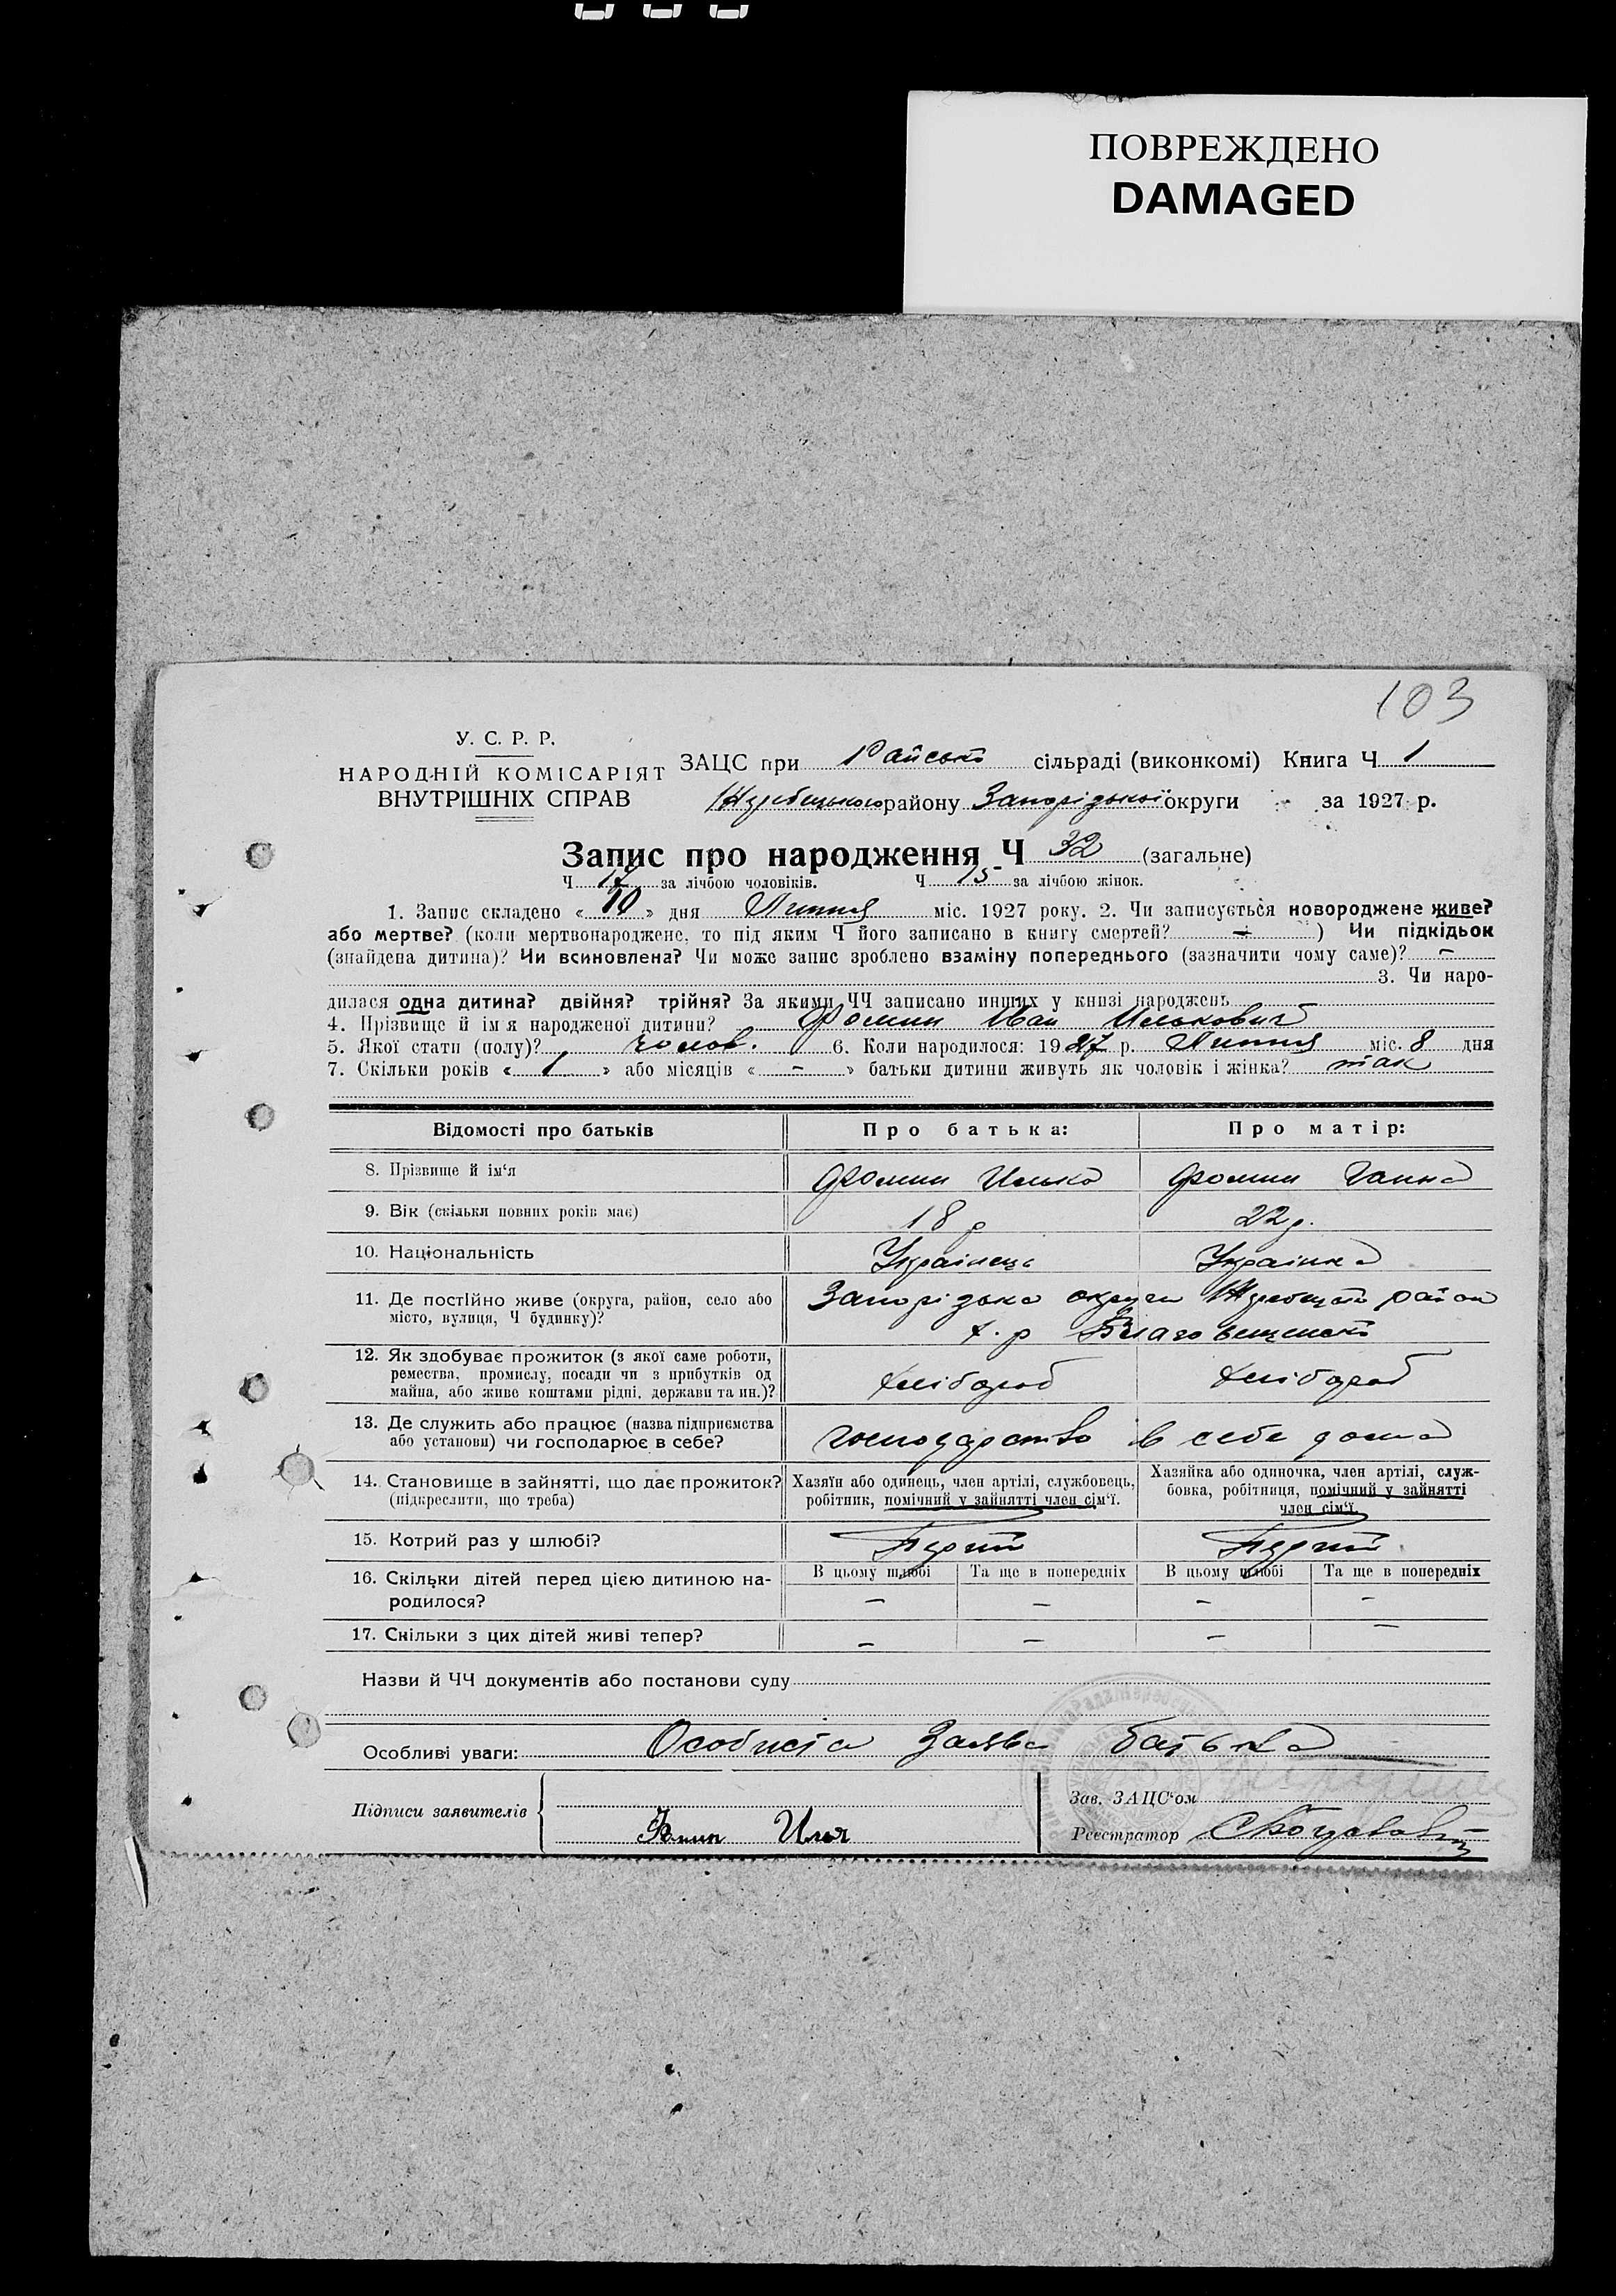 ПОВРЕЖДЕНО
DAMAGED
103
У. С. Р. Р.
НАРОДНІЙ КОМІСАРІЯТ
ВНУТРІШНІХ СПРАВ
ЗАЦС при Райській сільраді (виконкомі) Книга Ч 1
Жеребецького району Запорізької округи за 1927 р.
Запис про народження Ч 32 (загальне)
Ч 17 за лічбою чоловіків. Ч 15 за лічбою жінок.
1. Запис складено « 10 » дня Липня міс. 1927 року. 2. Чи записується новороджене живе?
або мертве? (коли мертвонароджене, то під яким Ч його записано в книгу смертей? - ) Чи підкідьок
(знайдена дитина)? Чи всиновлена? Чи може запис зроблено взаміну попереднього (зазначити чому саме)? -
3. Чи наро-
дилася одна дитина? двійня? трійня? За якими ЧЧ записано инших у книзі народжень
4. Прізвище й ім'я народженої дитини? Фомин Іван Илькович
5. Якої стати (полу)? чолов. 6. Коли народилося: 1927 р. Липня міс. 8 дня
7. Скільки років « 1 » або місяців « - » батьки дитини живуть як чоловік і жінка? так
Відомості про батьків Про батька: Про матір:
8. Прізвище й ім'я Фомин Илько Фомин Ганна
9. Вік (скільки повних років має) 18 р 22 р.
10. Національність Українець Українка
11. Де постійно живе (округа, район, село або Запорізька округи Жеребецький район
місто, вулиця, Ч будинку)? х-р Благовещенський
12. Як здобуває прожиток (з якої саме роботи,
ремества, промислу, посади чи з прибутків од
майна, або живе коштами рідні, держави та ин.)? хлібороб хлібороб
13. Де служить або працює (назва підприємства
або установи) чи господарює в себе? господарство в себе дома
14. Становище в зайнятті, що дає прожиток? Хазяїн або одинець, член артілі, службовець, Хазяйка або одиночка, член артілі, служ-
(підкреслити, що треба) робітник, помічний у зайнятті член сім'ї. бовка, робітниця, помічний у зайнятті
член сім'ї.
15. Котрий раз у шлюбі? Перший Перший
16. Скільки дітей перед цією дитиною на- В цьому шлюбі Та ще в попередніх В цьому шлюбі Та ще в попередніх
родилося? - - - -
17. Скільки з цих дітей живі тепер? - - - -
Назви й ЧЧ документів або постанови суду
Особливі уваги: Особиста Заява батька
Підписи заявителів
Зав. ЗАЦС'ом
Фомин Илья
Реєстратор